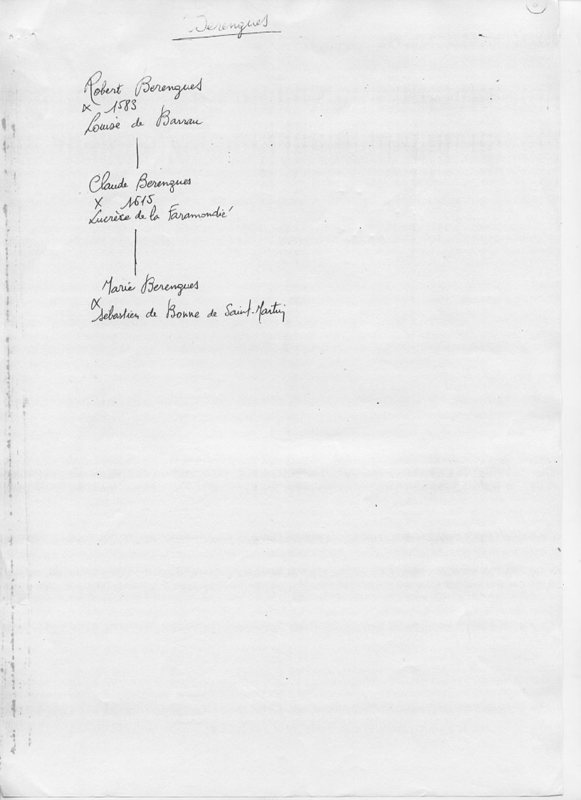 Berengues
Robert Berengues
x 1583
Louise de Barrau
Claude Berengues
x 1615
Lucrèce de la Faramondié
Marie Berengues
x
Sébastien de Bonne de Saint-Martin